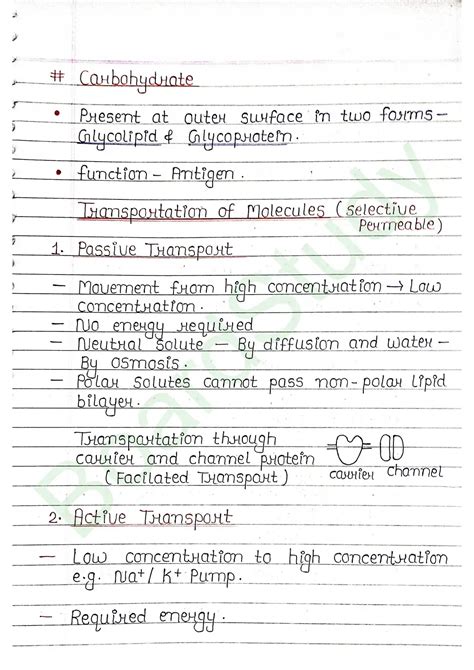 # Carbohydrate
• Present at outer surface in two forms –
Glycolipid & Glycoprotein.
• function – Antigen.
Transportation of Molecules (selective
Permeable)
1. Passive Transport
– Movement from high concentration → Low
concentration.
– No energy required
– Neutral solute – By diffusion and water –
By osmosis.
– Polar solutes cannot pass non-polar lipid
bilayer.
Transportation through
carrier and channel protein
(Facilated Transport)
carrier channel
2. Active Transport
– Low concentration to high concentration
e.g. Na+/K+ Pump.
– Required energy.
Board Study